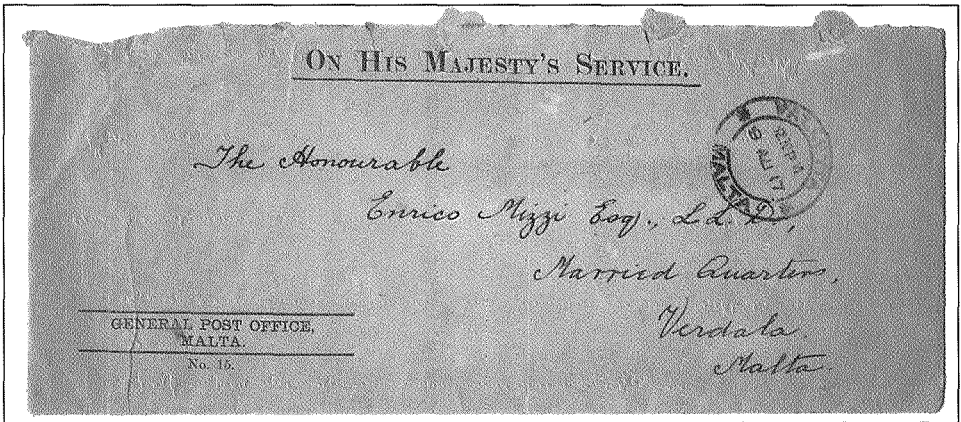 ON HIS MAJESTY'S SERVICE.
The Honourable
Enrico Mizzi Esq., LL.D.,
Married Quarters,
Verdala.
Malta.
GENERAL POST OFFICE,
MALTA.
No. 15.
MALTA